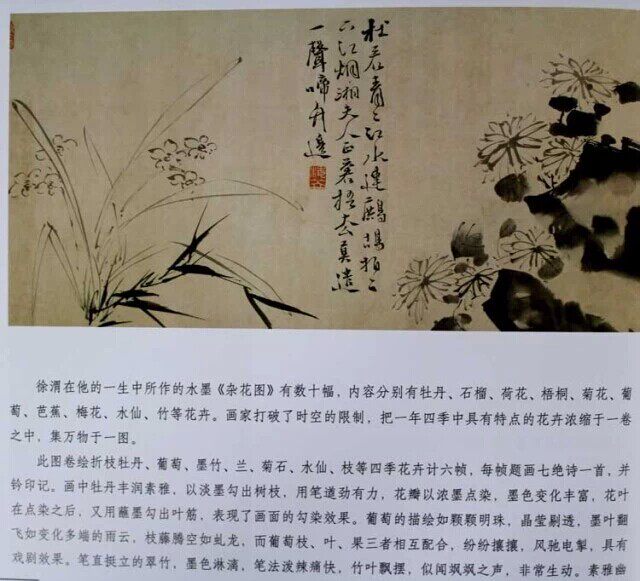 杜若青〻江水連鷓鴣拍〻
下江烟湘夫人正蒼梧去莫遣
一聲啼竹邊
徐渭在他的一生中所作的水墨《杂花图》有数十幅，内容分别有牡丹、石榴、荷花、梧桐、菊花、葡
萄、芭蕉、梅花、水仙、竹等花卉。画家打破了时空的限制，把一年四季中具有特点的花卉浓缩于一卷
之中，集万物于一图。
此图卷绘折枝牡丹、葡萄、墨竹、兰、菊石、水仙、枝等四季花卉计六帧，每帧题画七绝诗一首，并
钤印记。画中牡丹丰润素雅，以淡墨勾出树枝，用笔道劲有力，花瓣以浓墨点染，墨色变化丰富，花叶
在点染之后，又用蘸墨勾出叶筋，表现了画面的勾染效果。葡萄的描绘如颗颗明珠，晶莹剔透，墨叶翻
飞如变化多端的雨云，枝藤腾空如虬龙，而葡萄枝、叶、果三者相互配合，纷纷攘攘，风驰电掣，具有
戏剧效果。笔直挺立的翠竹，墨色淋漓，笔法泼辣痛快，竹叶飘摆，似闻飒飒之声，非常生动。素雅幽